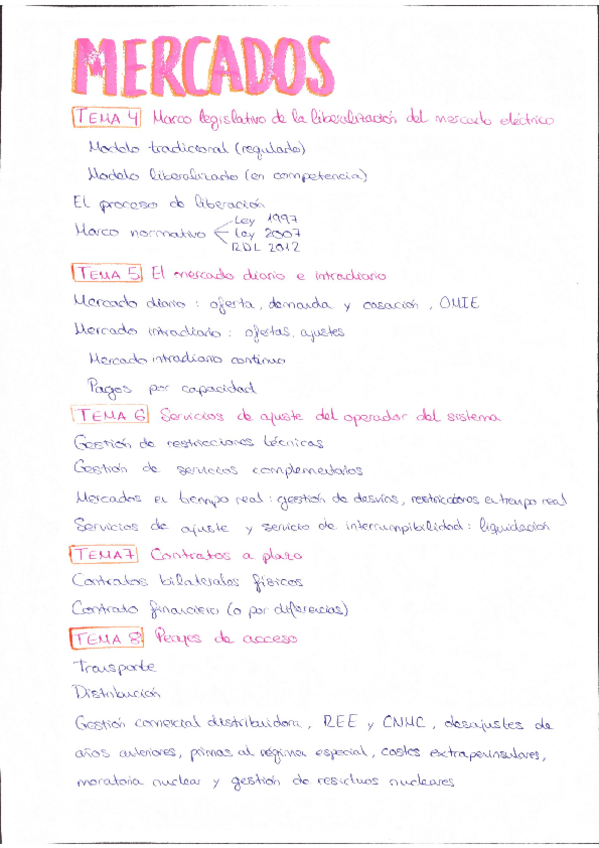 MERCADOS
TEMA 4 Marco legislativo de la liberalización del mercado eléctrico
Modelo tradicional (regulado)
Modelo liberalizado (en competencia)
El proceso de liberación
Marco normativo
Ley 1997
Ley 2007
RDL 2012
TEMA 5 El mercado diario e intradiario
Mercado diario : oferta, demanda y casación, OMIE
Mercado intradiario : ofertas, ajustes
Mercado intradiario continuo
Pagos por capacidad
TEMA 6 Servicios de ajuste del operador del sistema
Gestión de restricciones técnicas
Gestión de servicios complementarios
Mercados en tiempo real : gestión de desvíos, restricciones en tiempo real
Servicios de ajuste y servicio de interrumpibilidad : liquidación
TEMA 7 Contratos a plazo
Contratos bilaterales físicos
Contrato financiero (o por diferencias)
TEMA 8 Peajes de acceso
Transporte
Distribución
Gestión comercial distribuidora, REE y CNMC, desajustes de
años anteriores, primas al régimen especial, costes extrapeninsulares,
moratoria nuclear y gestión de residuos nucleares